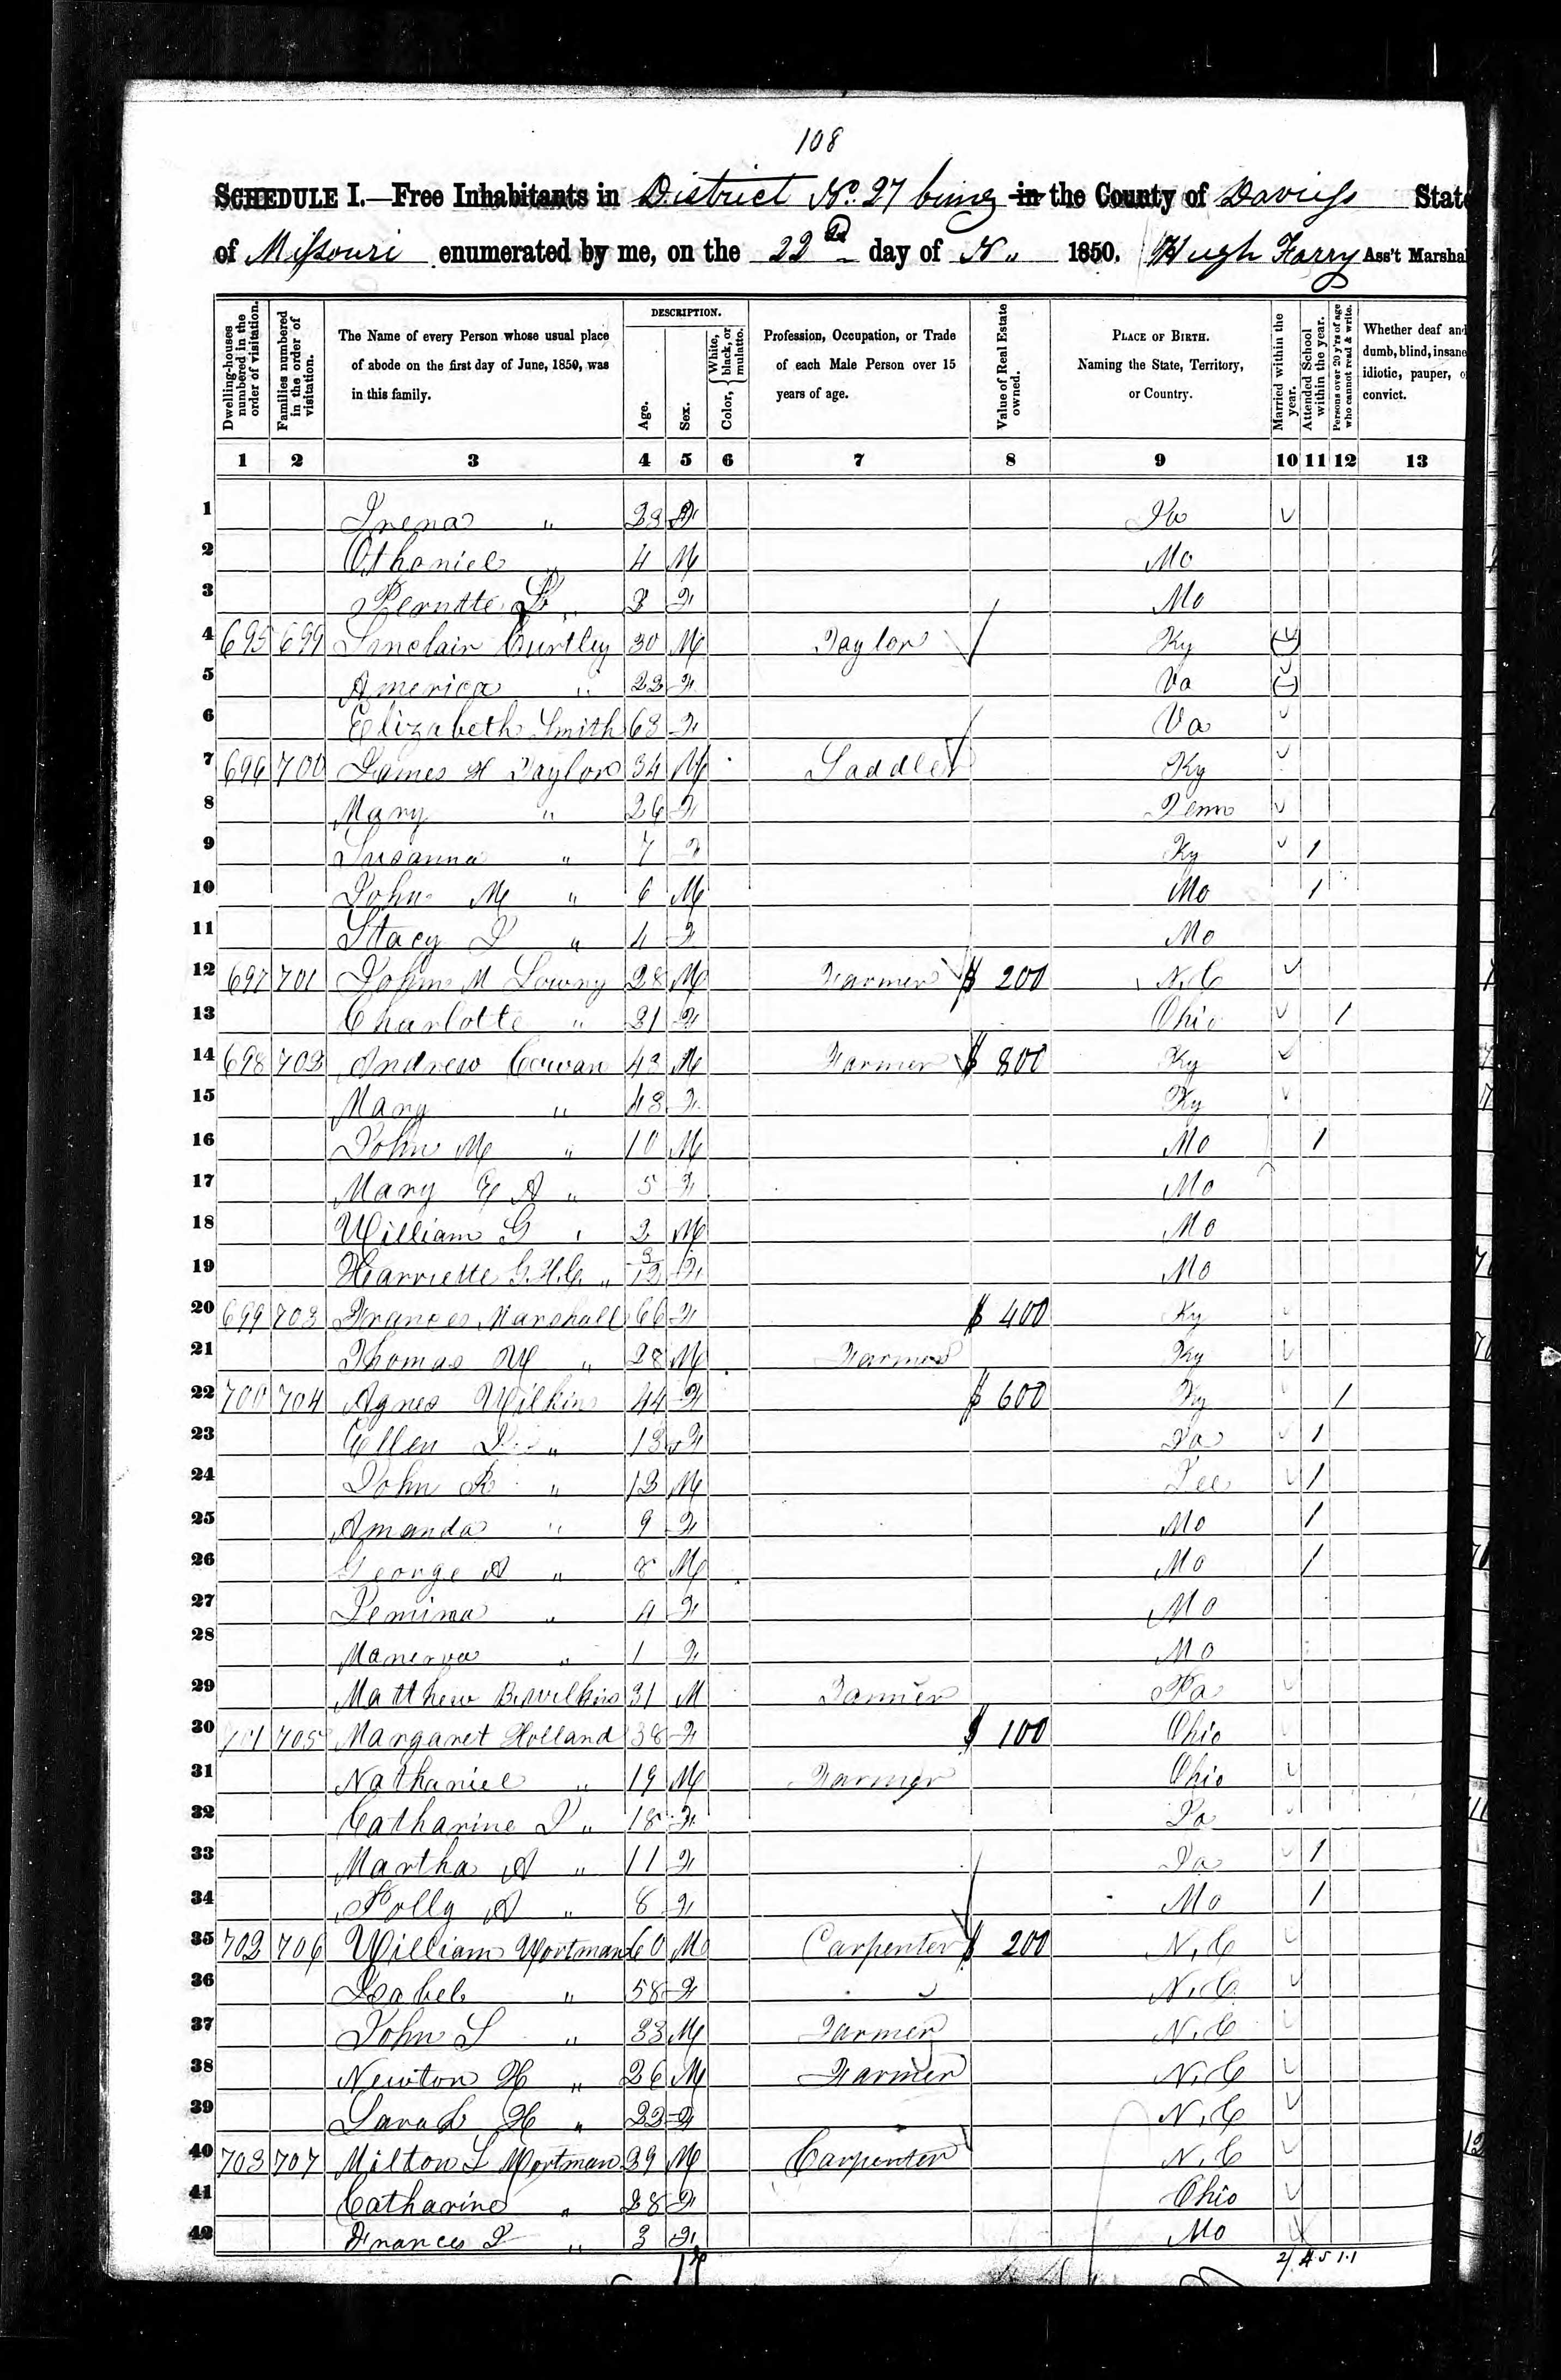 108
SCHEDULE I.—Free Inhabitants in District No. 27 being in the County of Daviess State
of Missouri enumerated by me, on the 22d day of N.. 1850. Hugh Farry Ass't Marshal
Dwelling-houses numbered in the order of visitation. Families numbered in the order of visitation. The Name of every Person whose usual place of abode on the first day of June, 1850, was in this family. DESCRIPTION. Age. Sex. Color, White, black, or mulatto. Profession, Occupation, or Trade of each Male Person over 15 years of age. Value of Real Estate owned. PLACE OF BIRTH. Naming the State, Territory, or Country. Married within the year. Attended School within the year. Persons over 20 y'rs of age who cannot read & write. Whether deaf and dumb, blind, insane, idiotic, pauper, or convict.
1 2 3 4 5 6 7 8 9 10 11 12 13
1 Irena " 23 F
2 Othaniel " 4 M Mo
3 " F Mo
4 695 699 Sinclair Curtley 30 M Taylor Ky
5 America " 22 F Va
6 Elizabeth Smith 63 F Va
7 696 700 James H Taylor 34 M Saddler Ky
8 Mary " 26 F Tenn
9 Susanna " 7 F Ky 1
10 John M " 6 M Mo 1
11 Stacy J " 4 F Mo
12 697 701 John M Lowry 28 M Farmer $ 200 N.C
13 Charlotte " 21 F Ohio 1
14 698 702 Andrew Cowan 43 M Farmer $ 800 Ky
15 Mary " 43 F Ky
16 John M " 10 M Mo 1
17 Mary E A " 5 F Mo
18 William G " 2 M Mo
19 Harriette G.H.C " 3/12 F Mo
20 699 703 Frances Marshall 66 F $ 400 Ky
21 Thomas M " 28 M Farmer Ky
22 700 704 Agnes Wilkins 44 F $ 600 Ky 1
23 Ellen J " 13 F Ia 1
24 John R " 12 M 1
25 Amanda " 9 F Mo 1
26 George A " 8 M Mo 1
27 Jemima " 4 F Mo
28 Manerva " 1 F Mo
29 Matthew B. Wilkins 21 M Tanner Pa
30 701 705 Margaret Holland 38 F $ 100 Ohio
31 Nathaniel " 19 M Farmer Ohio
32 Catharine J " 15 F Ia
33 Martha A " 11 F Ia 1
34 Polly A " 8 F Mo 1
35 702 706 William Wortman 60 M Carpenter $ 200 N.C
36 Isabel " 58 F N.C.
37 John L " 33 M Farmer N.C
38 Newton H " 26 M Farmer N.C
39 Sarah H " 22 F N.C
40 703 707 Milton L Wortman 29 M Carpenter N.C
41 Catharine " 28 F Ohio
42 Frances J " 3 F Mo